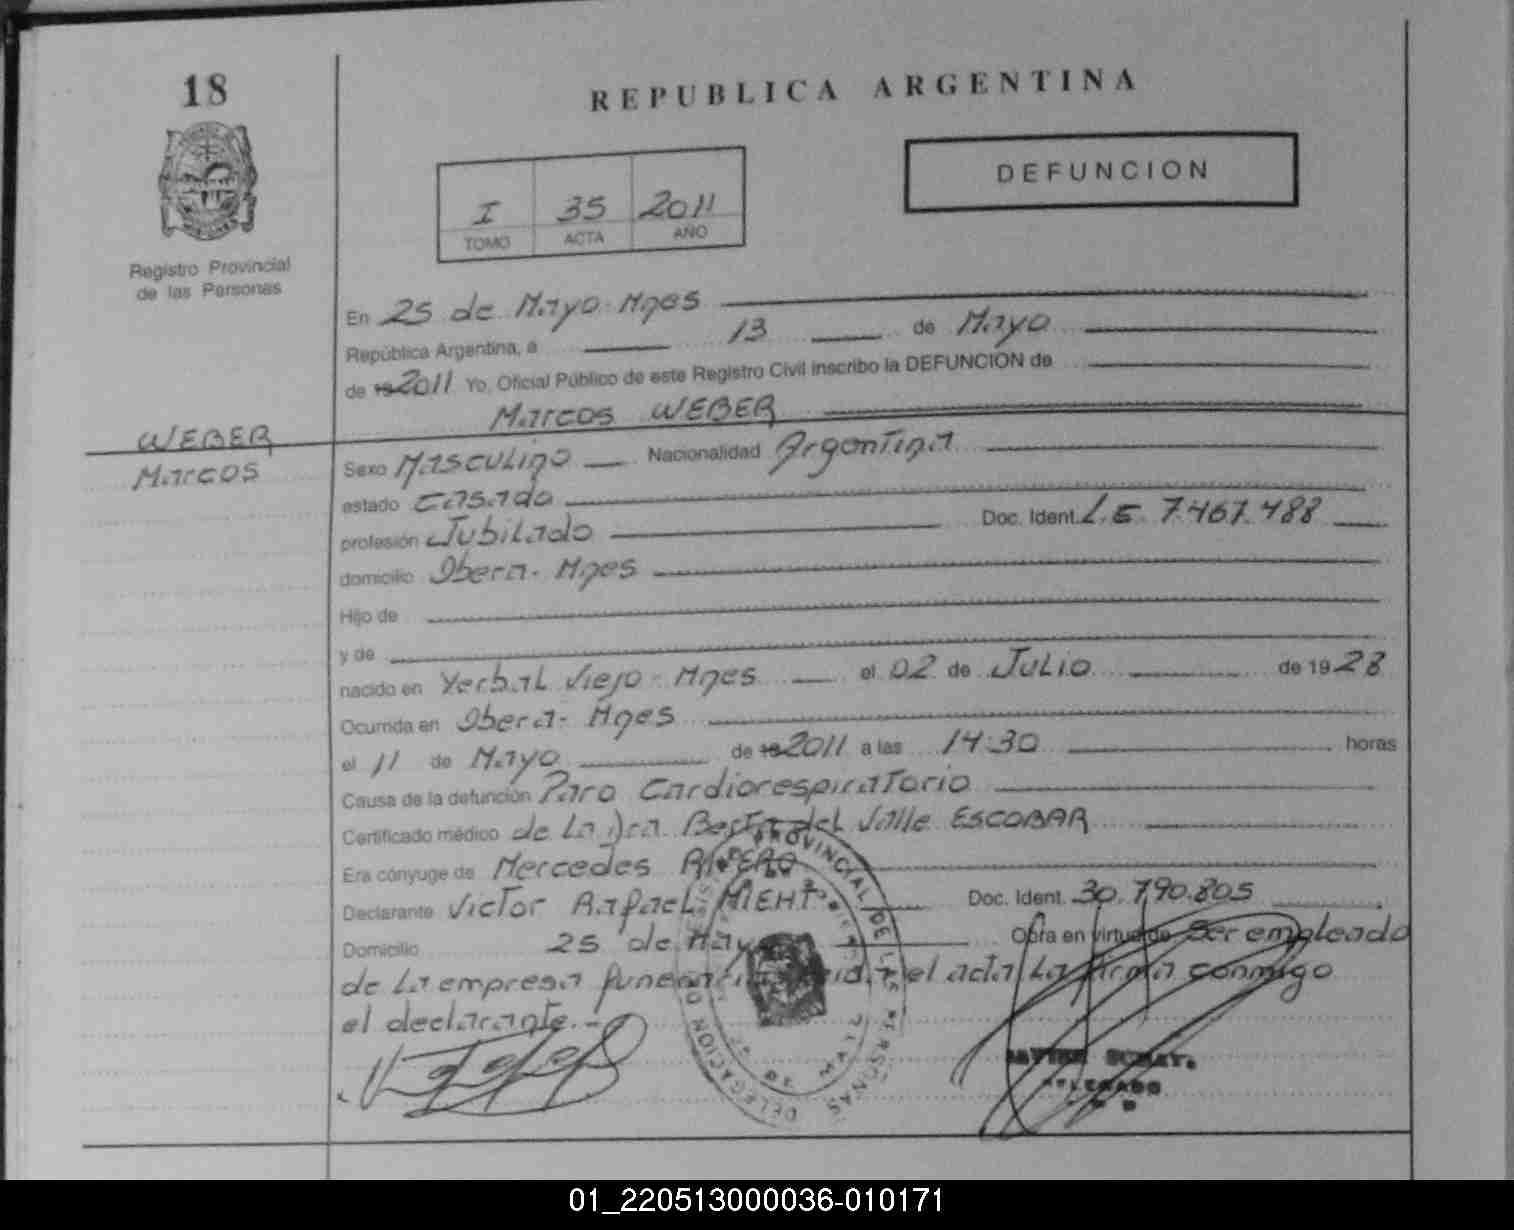 18
REPUBLICA ARGENTINA
DEFUNCION
I 35 2011
TOMO ACTA AÑO
Registro Provincial
de las Personas
En 25 de Mayo-Mnes
República Argentina, a 13 de Mayo
de 19 2011 Yo, Oficial Público de este Registro Civil inscribo la DEFUNCION de
Marcos WEBER
WEBER
Marcos
Sexo Masculino Nacionalidad Argentina
estado Casado
profesión Jubilado Doc. Ident. L.E. 7.467.488
domicilio Obera-Mnes
Hijo de
y de
nacido en Yerbal Viejo-Mnes el 02 de Julio de 1928
Ocurrida en Obera-Mnes
el 11 de Mayo de 19 2011 a las 14:30 horas
Causa de la defunción Paro Cardiorespiratorio
Certificado médico de La Dra. Berta del Valle ESCOBAR
Era cónyuge de Mercedes
Declarante Victor Rafael Doc. Ident. 30.790.805
Domicilio 25 de Mayo Obra en virtud de Ser empleado
de La empresa funeraria el acta La firma conmigo
el declarante.-
PROVINCIAL DE LAS PERSONAS
DELEGACION
DELEGADO
01_220513000036-010171